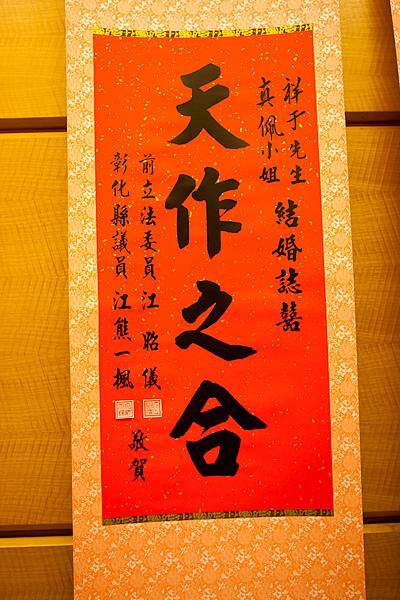 祥于先生
真佩小姐
結婚誌囍
天作之合
前立法委員江昭儀
彰化縣議員江熊一楓
敬賀